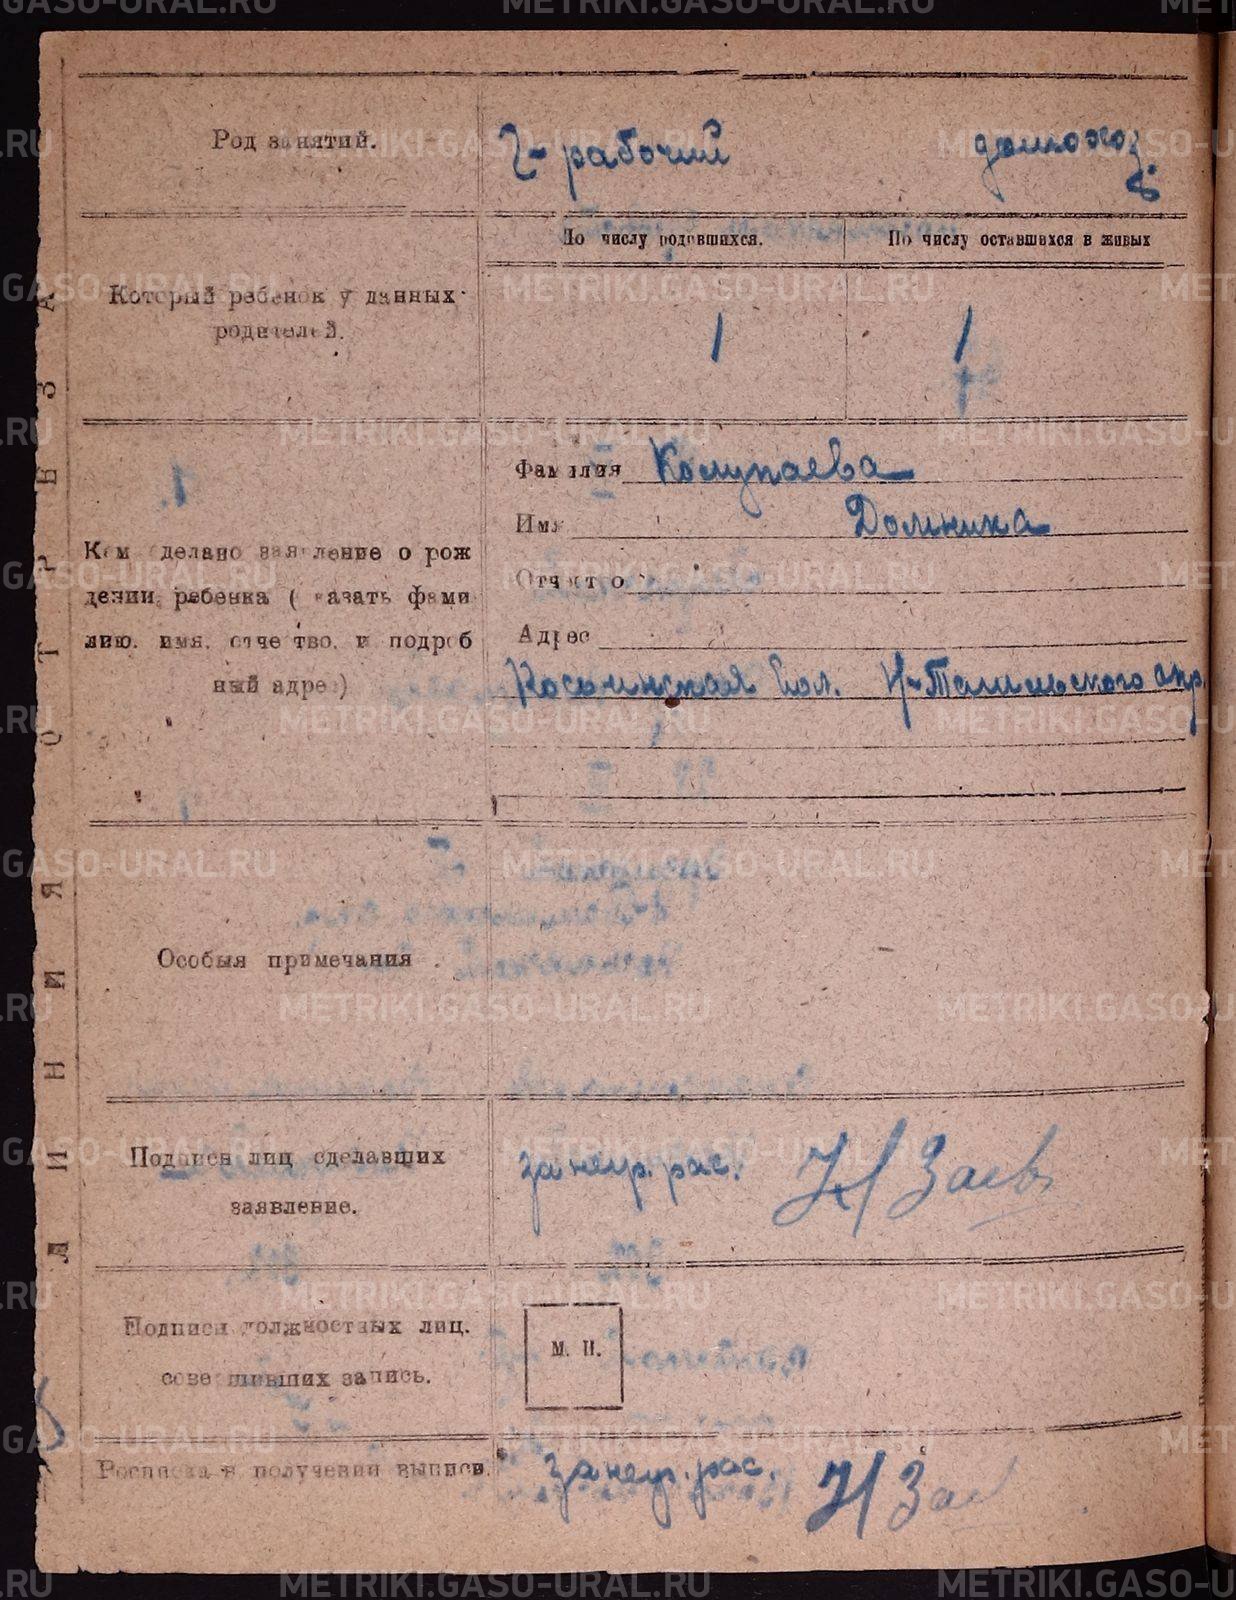 Род занятий.
Ч-рабочий домохоз.
По числу родившихся. По числу оставшихся в живых
Который ребенок у данных
родителей.
1 1
Фамилия Колупаева
Имя Домника
Отчество
Кем сделано заявление о рож
дении ребенка ( казать фами
лию, имя, отчество, и подроб
ный адрес)
Адрес
вол. Н-Тагильского окр.
Особыя примечания
Подписи лиц сделавших
заявление.
за негр. рас. Заев
Подписи должностных лиц.
совершивших запись.
М. П.
Росписка в получении выписи.
за негр. рас.
ЛИНИЯ ОТРЕЗА
METRIKI.GASO-URAL.RU